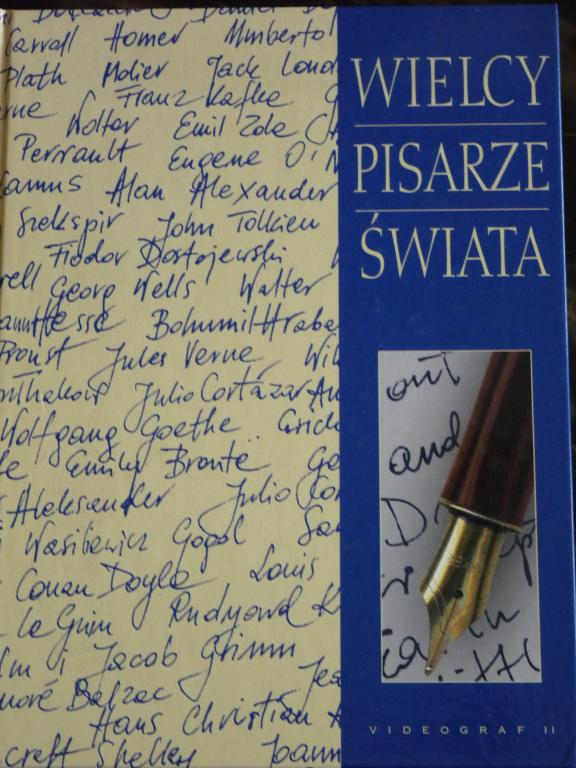 Carroll Homer Umberto
Plath Molier Jack Lond
rne Franz Kafka
Wolter Emil Zola
Perrault Eugene O'N
Camus Alan Alexander
Szekspir John Tolkien
Fiodor Dostojewski
rell Georg Wells Walter
Hesse Bohumil Hrabe
Proust Jules Verne Wil
Julio Cortázar An
Wolfgang Goethe Erich
Emily Brontë Ge
Aleksander Julio Cor
Wasiliewicz Gogol Sa
Conan Doyle Louis
le Guin Rudyard K
lm i Jacob Grimm
noré Balzac Jea
Hans Christian A
craft Shelley Joann
WIELCY
PISARZE
ŚWIATA
out
and
D
in
VIDEOGRAF II